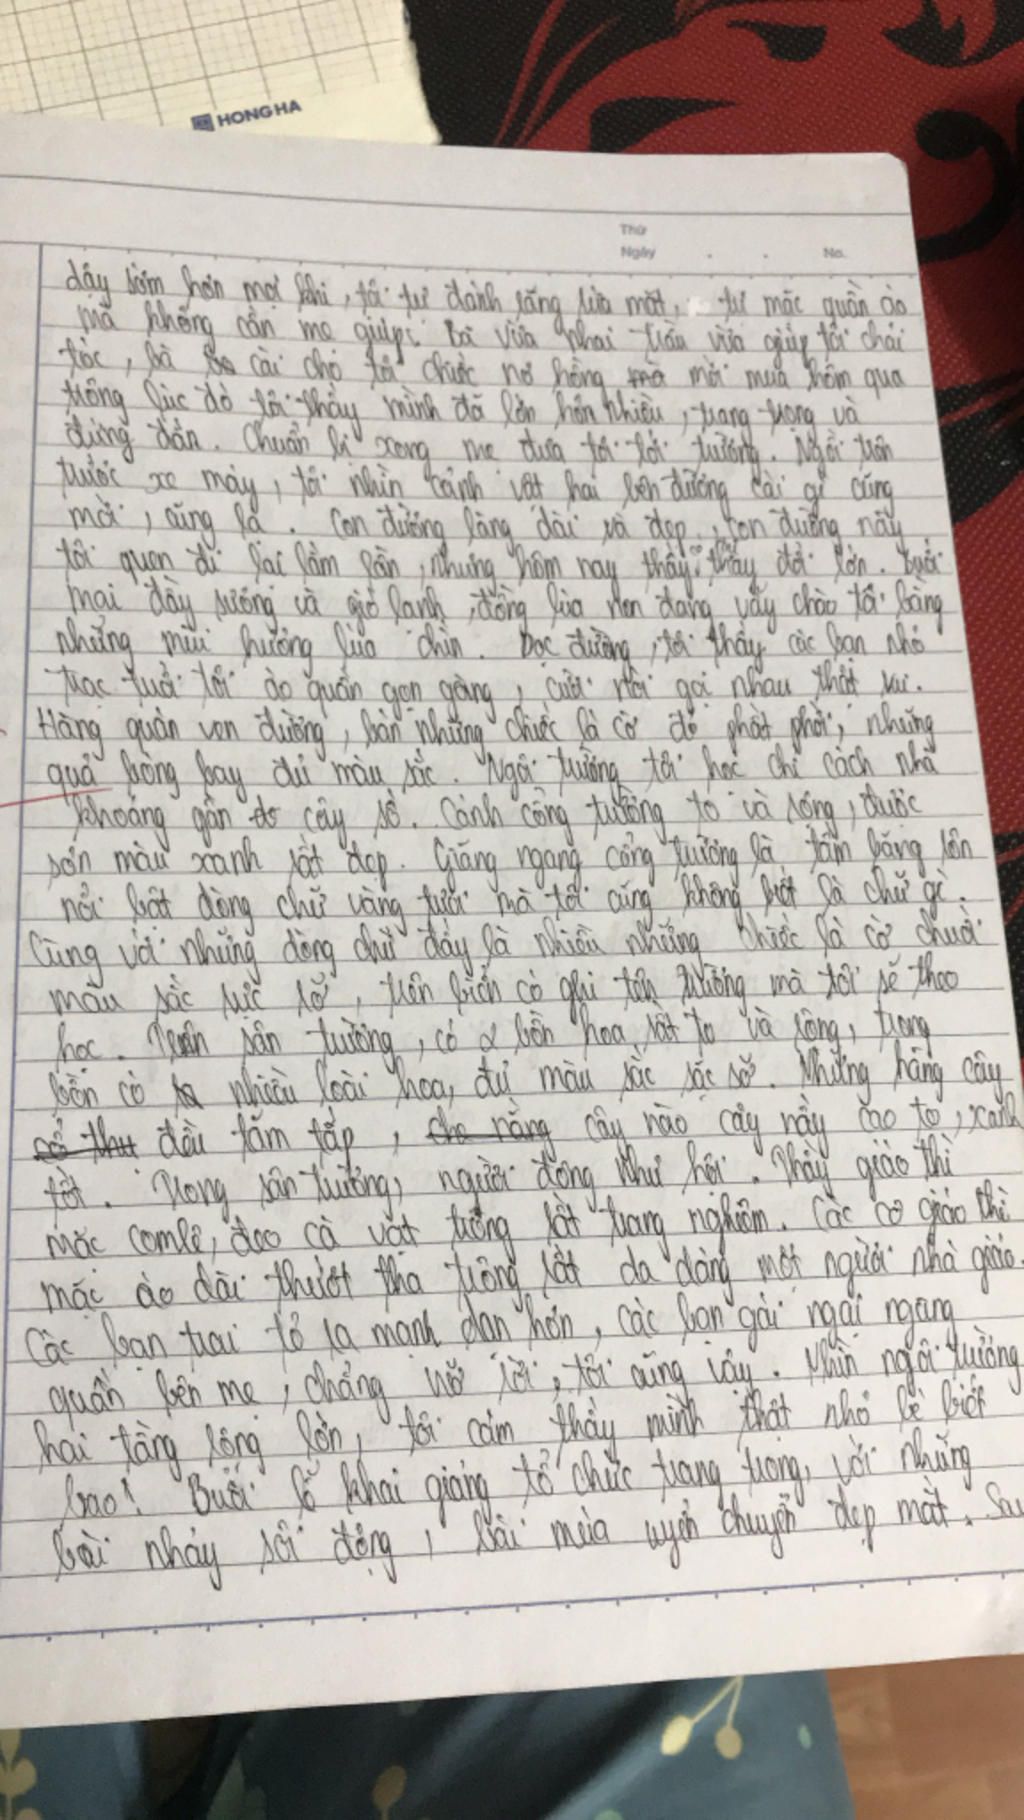 HONG HA
Thứ
Ngày . . No.
dậy sớm hơn mọi khi, tôi tự đánh răng rửa mặt, tự mặc quần áo
mà không cần mẹ giúp. Bà vừa nhai trầu vừa giúp tôi chải
tóc, bà cài cho tôi chiếc nơ hồng mà mới mua hôm qua
trông lúc đó tôi thấy mình đã lớn hơn nhiều, trang trọng và
đứng đắn. Chuẩn bị xong mẹ đưa tôi tới trường. Ngồi trên
trước xe máy, tôi nhìn cảnh vật hai bên đường cái gì cũng
mới, cũng lạ. Con đường làng dài và đẹp, con đường này
tôi quen đi lại lắm lần, nhưng hôm nay thấy thấy đổi lớn. Buổi
mai đầy sương và gió lạnh, đồng lúa non đang vẫy chào tôi bằng
những mùi hương lúa chín. Dọc đường, tôi thấy các bạn nhỏ
trạc tuổi tôi áo quần gọn gàng, cười nói gọi nhau thật vui.
Hàng quán ven đường, bán những chiếc lá cờ đỏ phất phới, những
quả bóng bay đủ màu sắc. Ngôi trường tôi học chỉ cách nhà
khoảng gần cây số. Cánh cổng trường to và rộng, được
sơn màu xanh rất đẹp. Giăng ngang cổng trường là tấm băng rôn
nổi bật dòng chữ vàng tươi mà tôi cũng không biết là chữ gì.
Cùng với những dòng chữ đấy là nhiều những chiếc lá cờ chuối
màu sắc rực rỡ, trên biển có ghi tên trường mà tôi sẽ theo
học. Trên sân trường, có 2 bồn hoa rất to và rộng, trong
bồn có nhiều loài hoa, đủ màu sắc sặc sỡ. Những hàng cây
đều tăm tắp, cây nào cây nấy cao to, xanh
tốt. Trong sân trường, người đông như hội. Thầy giáo thì
mặc comlê, đeo cà vạt trông rất trang nghiêm. Các cô giáo thì
mặc áo dài thướt tha trông rất da dáng một người nhà giáo.
Các bạn trai tỏ ra mạnh dạn hơn, các bạn gái ngại ngang
quấn bên mẹ, chẳng nỡ rời, tôi cũng vậy. Nhìn ngôi trường
hai tầng rộng lớn, tôi cảm thấy mình thật nhỏ bé biết
bao! Buổi lễ khai giảng tổ chức trang trọng, với những
bài nhảy sôi động, bài múa uyển chuyển đẹp mắt. Sau